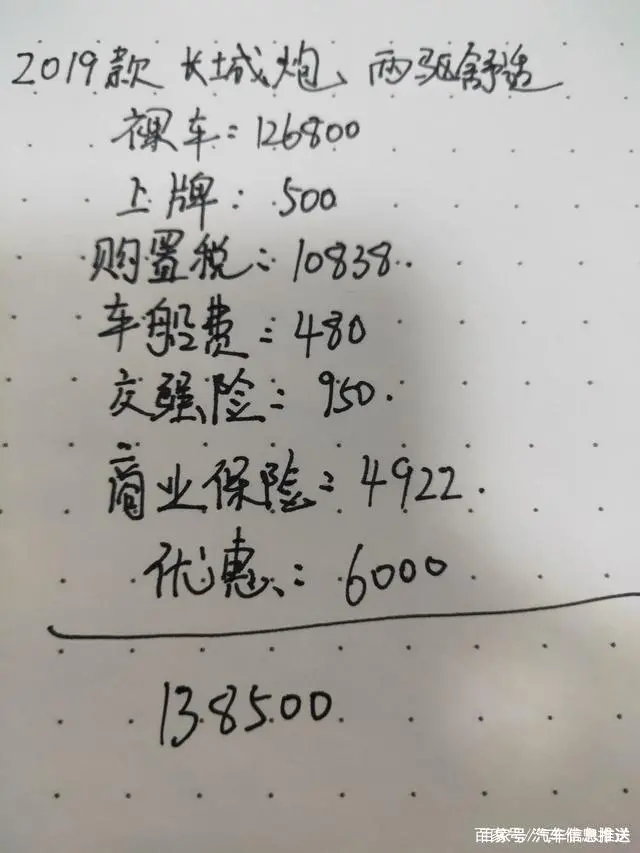 2019款 长城炮、两驱舒适
裸车:126800
上牌:500
购置税:10838.
车船费:480
交强险:950.
商业保险:4922.
优惠:6000
138500
百家号/汽车信息推送